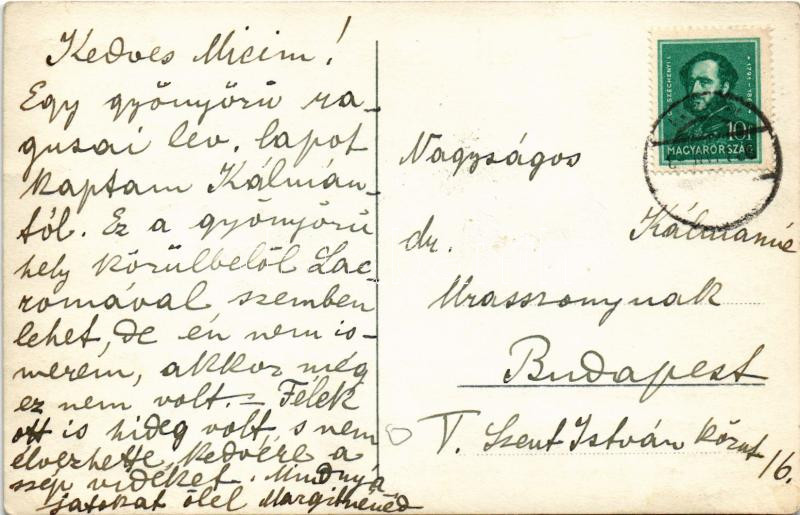 Kedves Micim!
Egy gyönyörü ra-
gusai lev. lapot
kaptam Kálmán-
tól. Ez a gyönyörü
hely körülbelöl Lac-
romával szemben
lehet, de én nem is-
merem, akkor még
ez nem volt. – Félek
ott is hideg volt, s nem
élvezhette kedvére a
szép vidéket. Mindnyá
jatokat ölel Margitnénéd
SZÉCHENYI I.
1791-18
10f
MAGYARORSZÁG
Nagyságos
dr. Kálmánné
Urasszonynak
Budapest
V. Szent István körut
16.